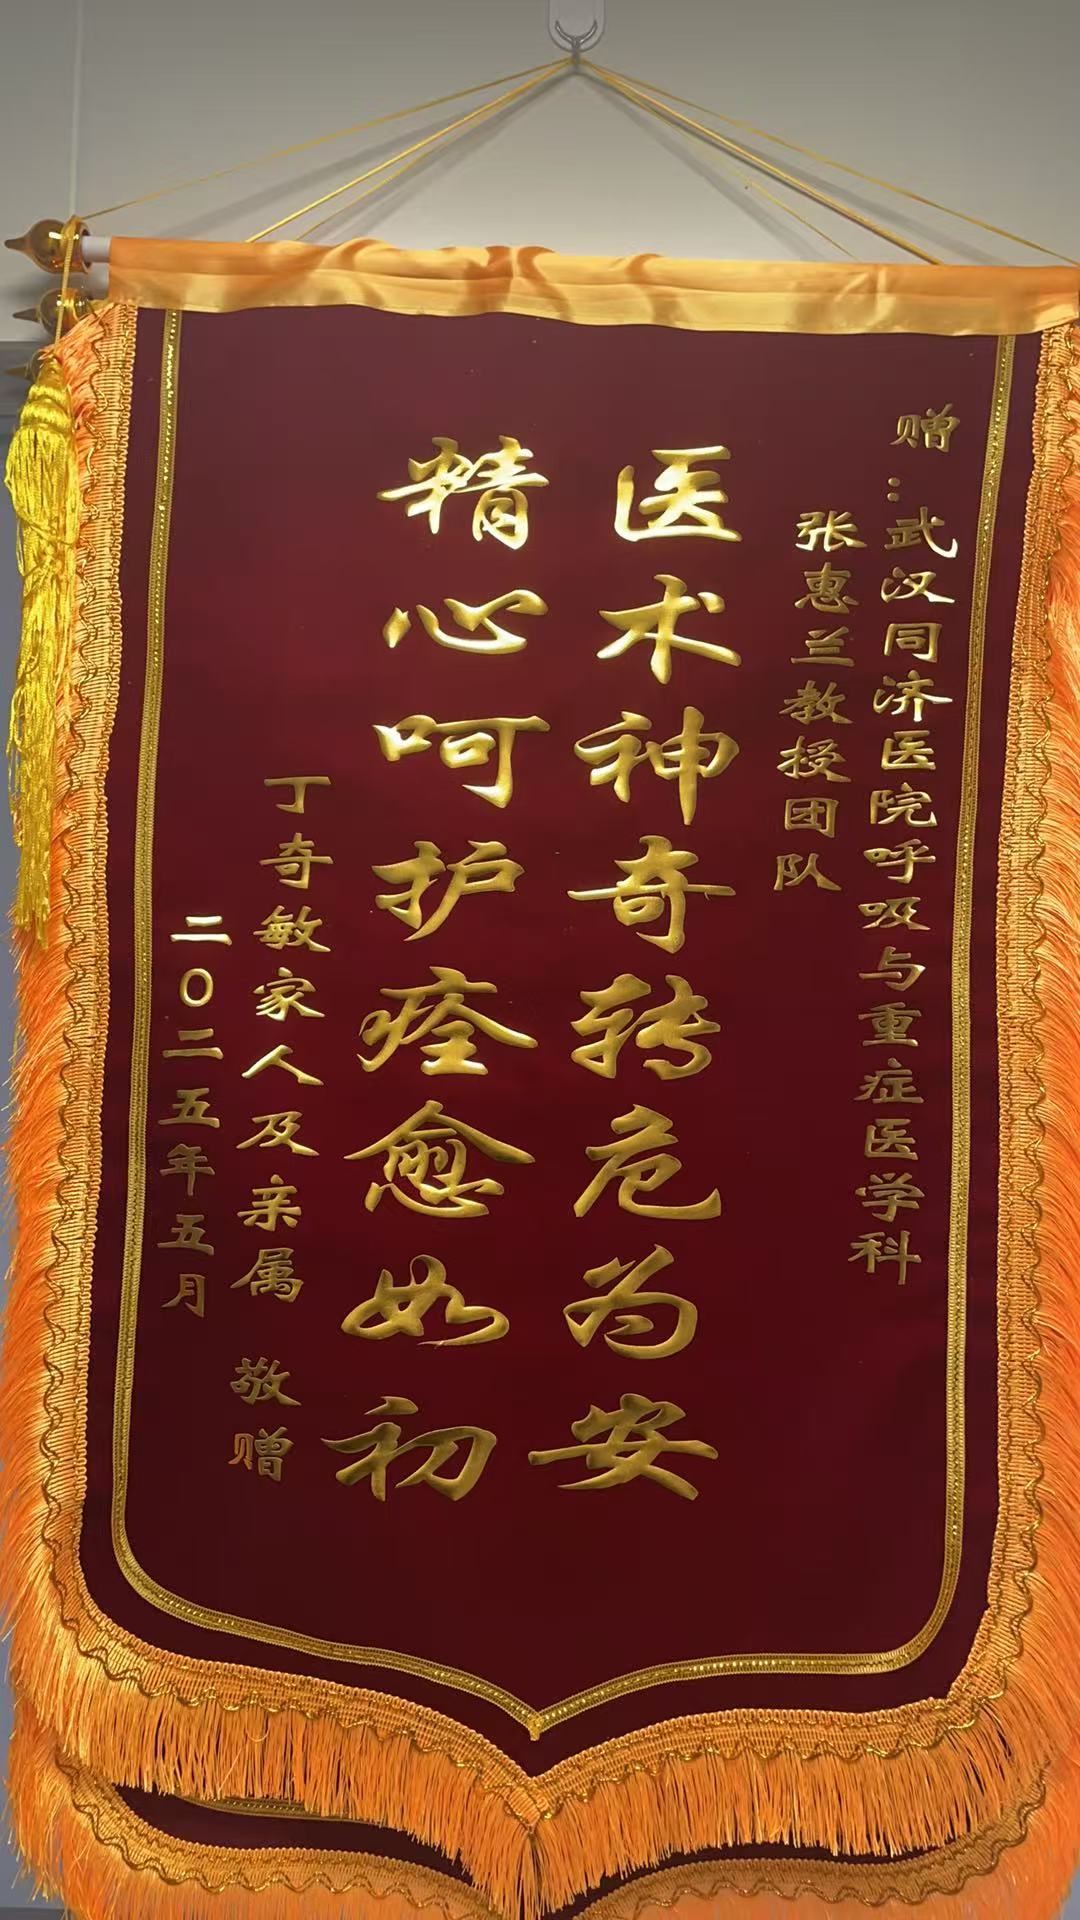 赠：武汉同济医院呼吸与重症医学科
张惠兰教授团队
医术神奇转危为安
精心呵护痊愈如初
丁奇敏家人及亲属 敬赠
二〇二五年五月